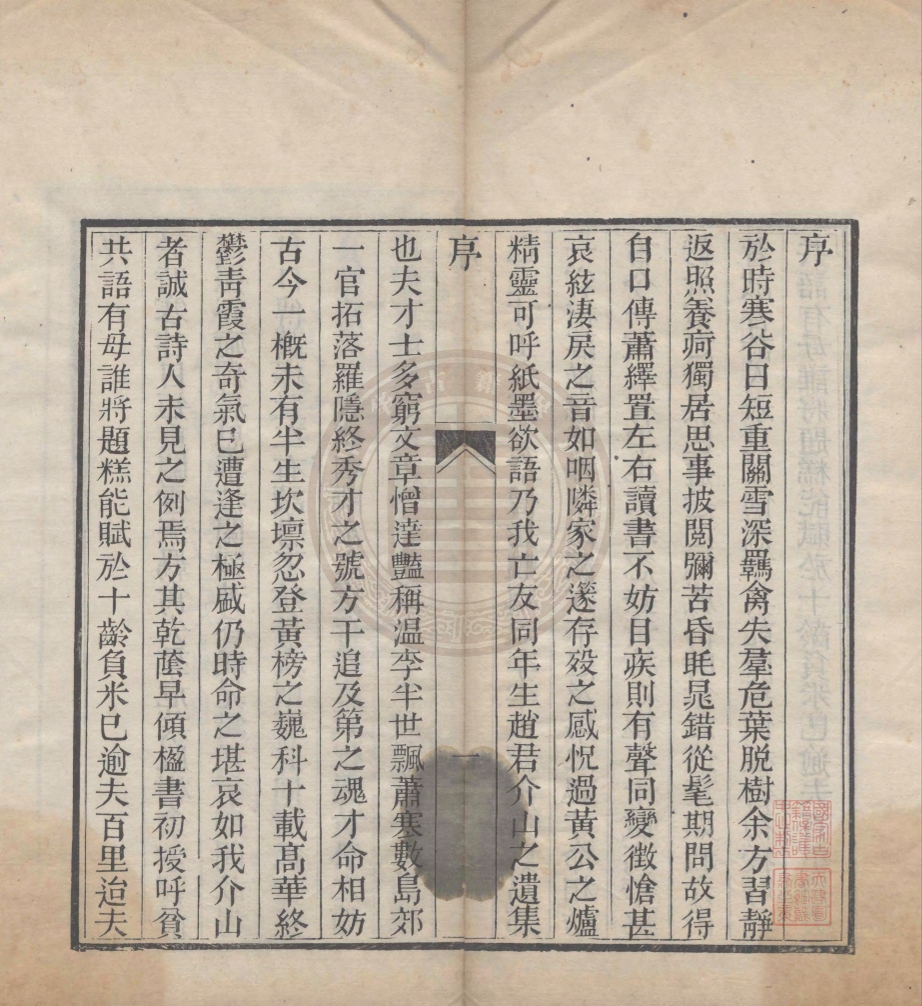 序
於時寒谷日短重關雪深羈禽失羣危葉脱樹余方習靜
返照養疴獨居思事披閱彌苦昏眊晁錯從髦期問故得
自口傳蕭繹置左右讀書不妨目疾則有聲同變徵愴甚
哀絃淒戾之音如咽隣家之邃存歿之感怳過黃公之爐
精靈可呼紙墨欲語乃我亡友同年生趙君介山之遺集
序
一
也夫才士多窮文章憎達豔稱温李半世飄蕭寒數島郊
一官拓落羅隱終秀才之號方干追及第之魂才命相妨
古今一概未有半生坎壈忽登黃榜之巍科十載髙華終
鬱靑霞之奇氣已遭逢之極盛仍時命之堪哀如我介山
者誠古詩人未見之例焉方其乾蔭早傾楹書初授呼貧
共語有母誰將題糕能賦於十齡負米已逾夫百里迨夫